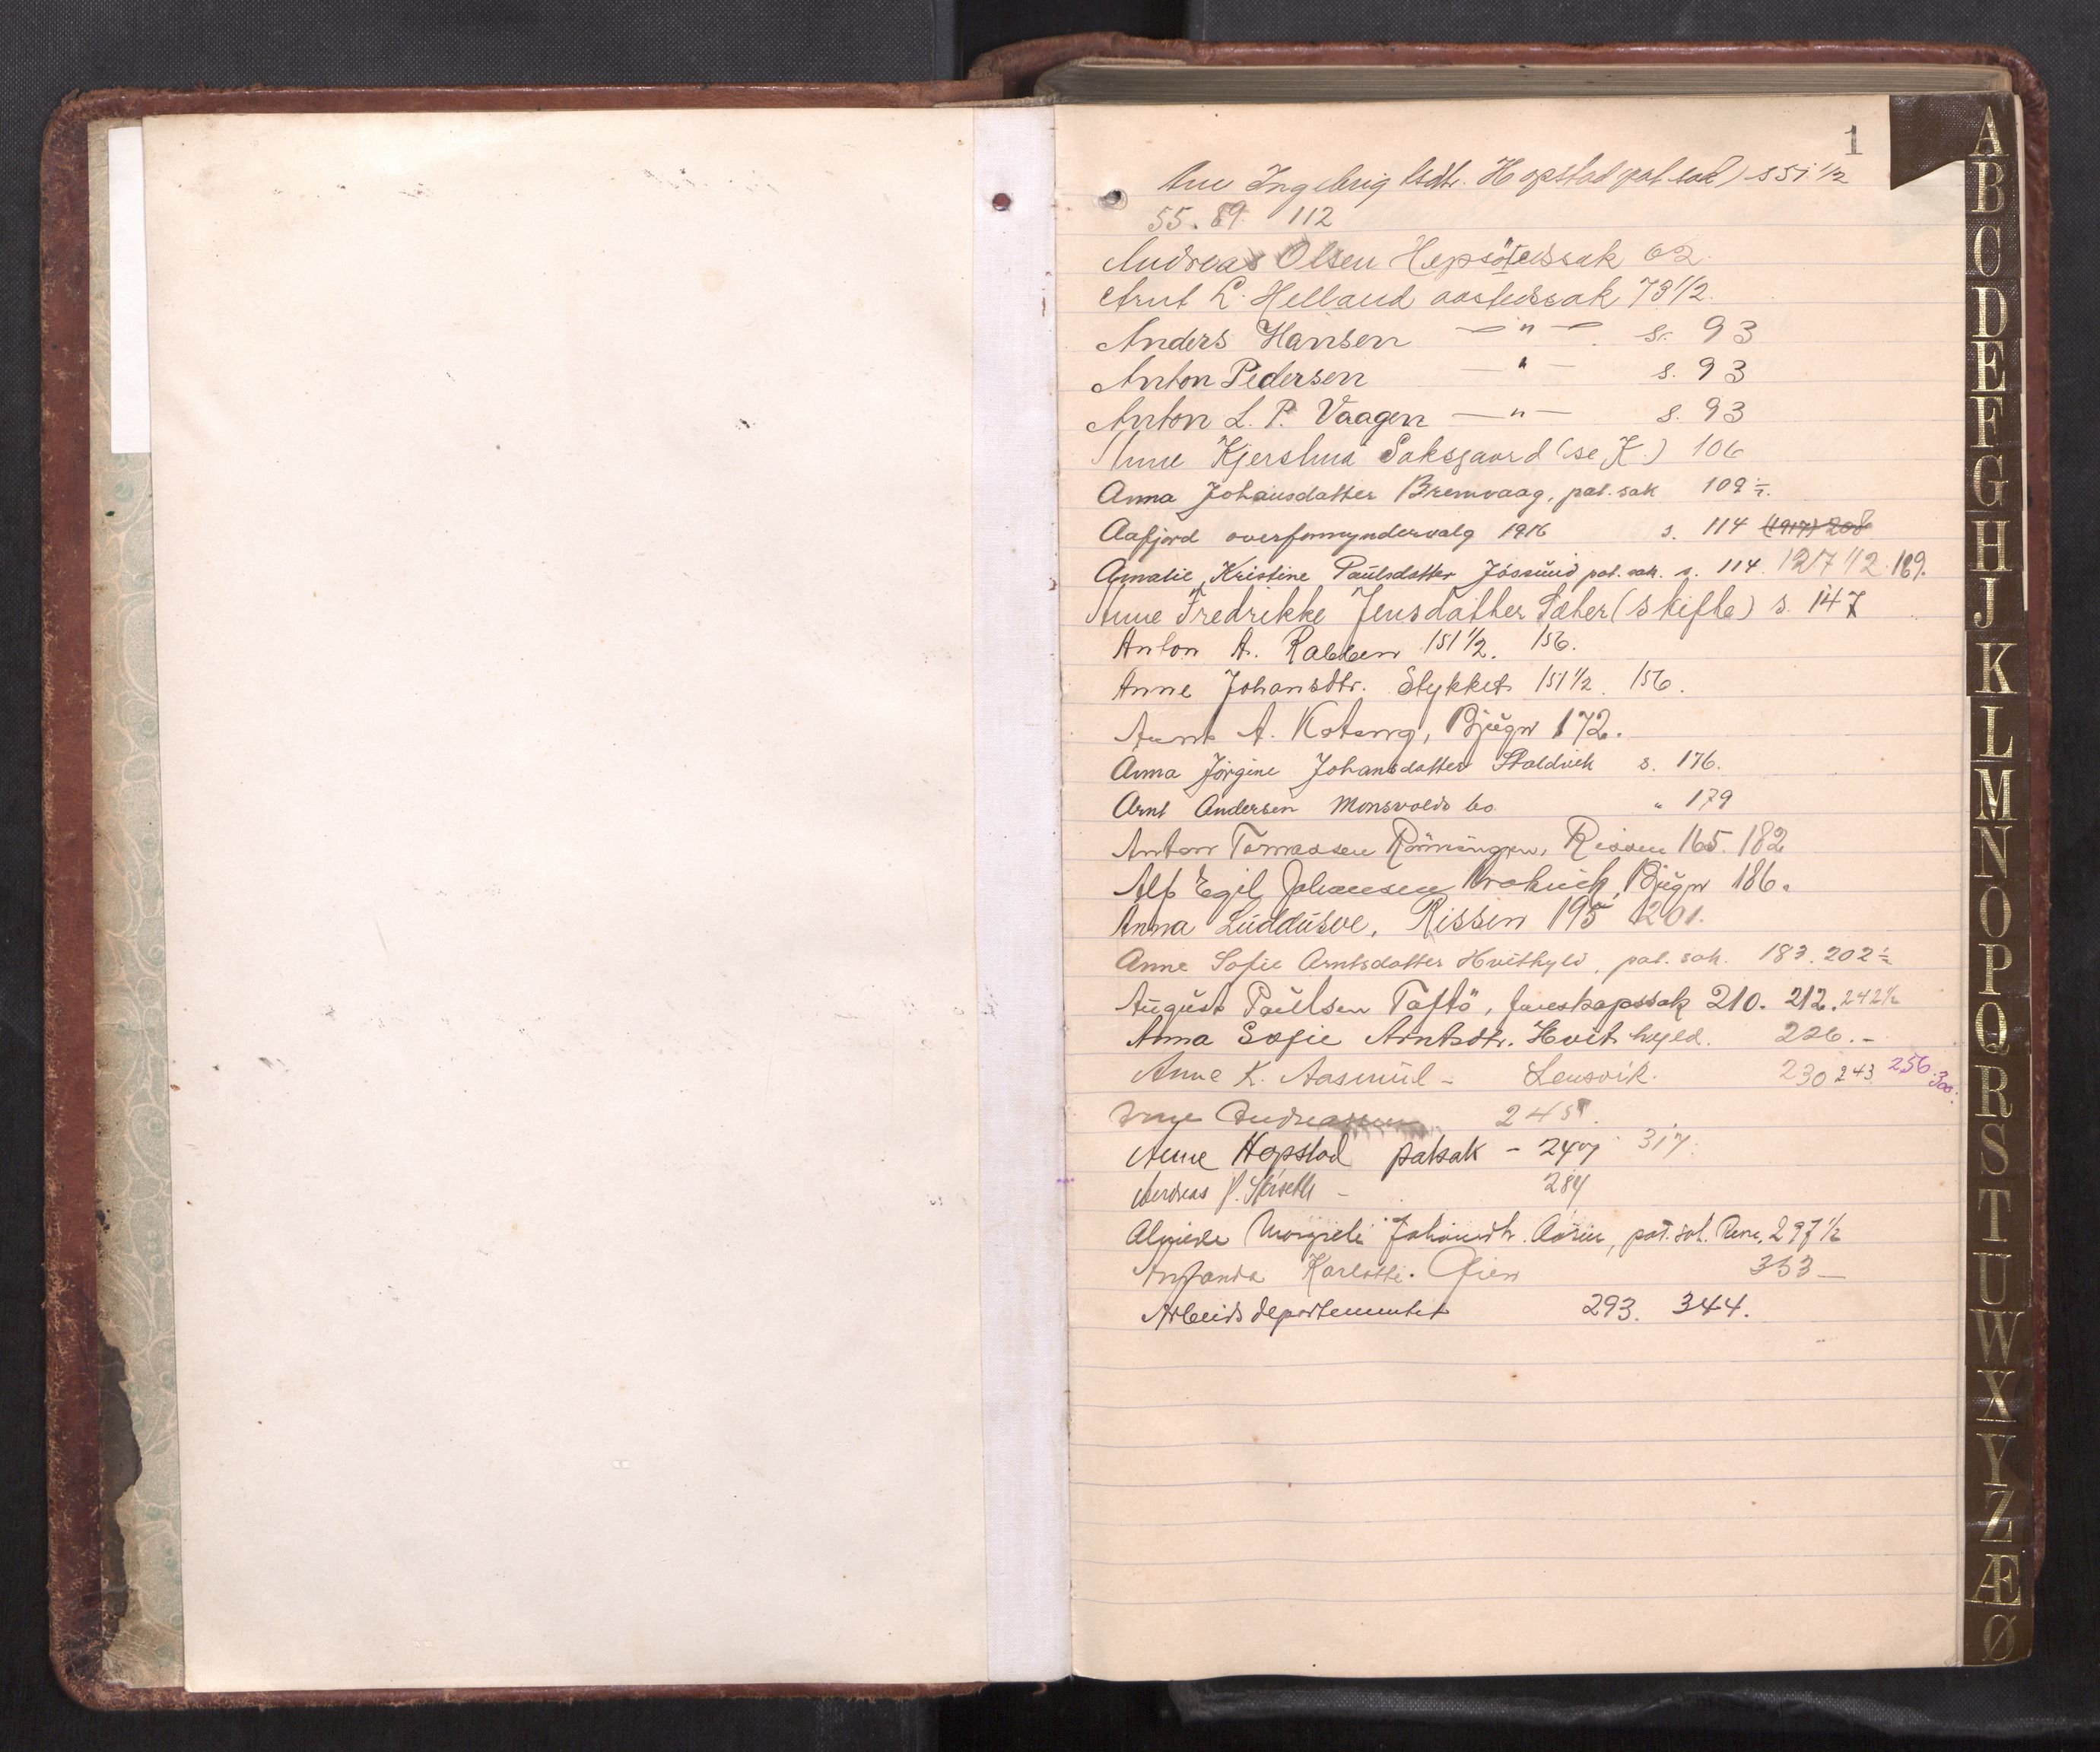 1
Ane Ingebrig Hopstad pat sak) s 51 1/2
55. 89. 112
Andreas Olsen 62.
Arnt L. Helland aastedssak 73 1/2.
Anders Hansen — " — s. 93
Anton Pedersen — " — s. 93
Anton L. P. Vaagen — " — s. 93
Anne Saksgaard (se K.) 106
Anna Johansdatter Bremvaag, pat. sak 109 1/2.
Aafjord overformyndervalg 1916 s. 114 (1917) 208
Amalie Kristine Paulsdatter Jössund pat. sak. s. 114. 127 1/2. 169.
Anne Fredrikke Jensdatter Sæther (skifte) s. 147
Anton A. Rabben 151 1/2. 156.
Anne Johansdtr. Stykket 151 1/2. 156.
A. Koteng, Bjugn 172.
Anna Jörgine Johansdatter s. 176.
Arnt Andersen Monsvolds bo. " 179
Anton Tomassen Rönningen, Rissen 165. 182
Alf Egil Johansen Bjugn 186.
Anna Rissen 195 201.
Anne Sofie Arntsdatter Hvithyld, pat. sak. 183. 202 1/2
August Paulsen Taftö, farskapssak 210. 212. 242 1/2
Anna Sofie Arntsdtr. Hvithyld. 226. -
Anne K. Aasmul - Lensvik. 230 243 256. 300.
245.
Anne Hopstad patsak - 247 317.
Andreas 284
Margrete pat. sak. 297 1/2
Karlotte. 353 —
Arbeidsdepartementet 293. 344.
A
B
C
D
E
F
G
H
J
K
L
M
N
O
P
Q
R
S
T
U
W
X
Y
Z
Æ
Ø